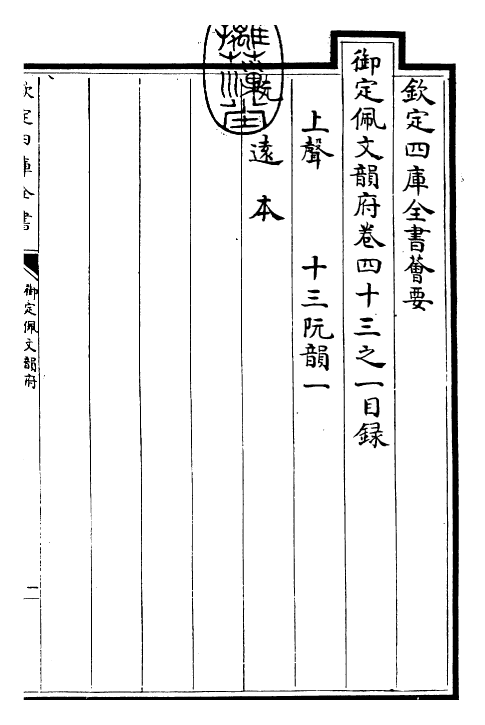 欽定四庫全書薈要
御定佩文韻府卷四十三之一目録
上聲　十三阮韻一
阮　遠　本
欽定四庫全書
御定佩文韻府
一